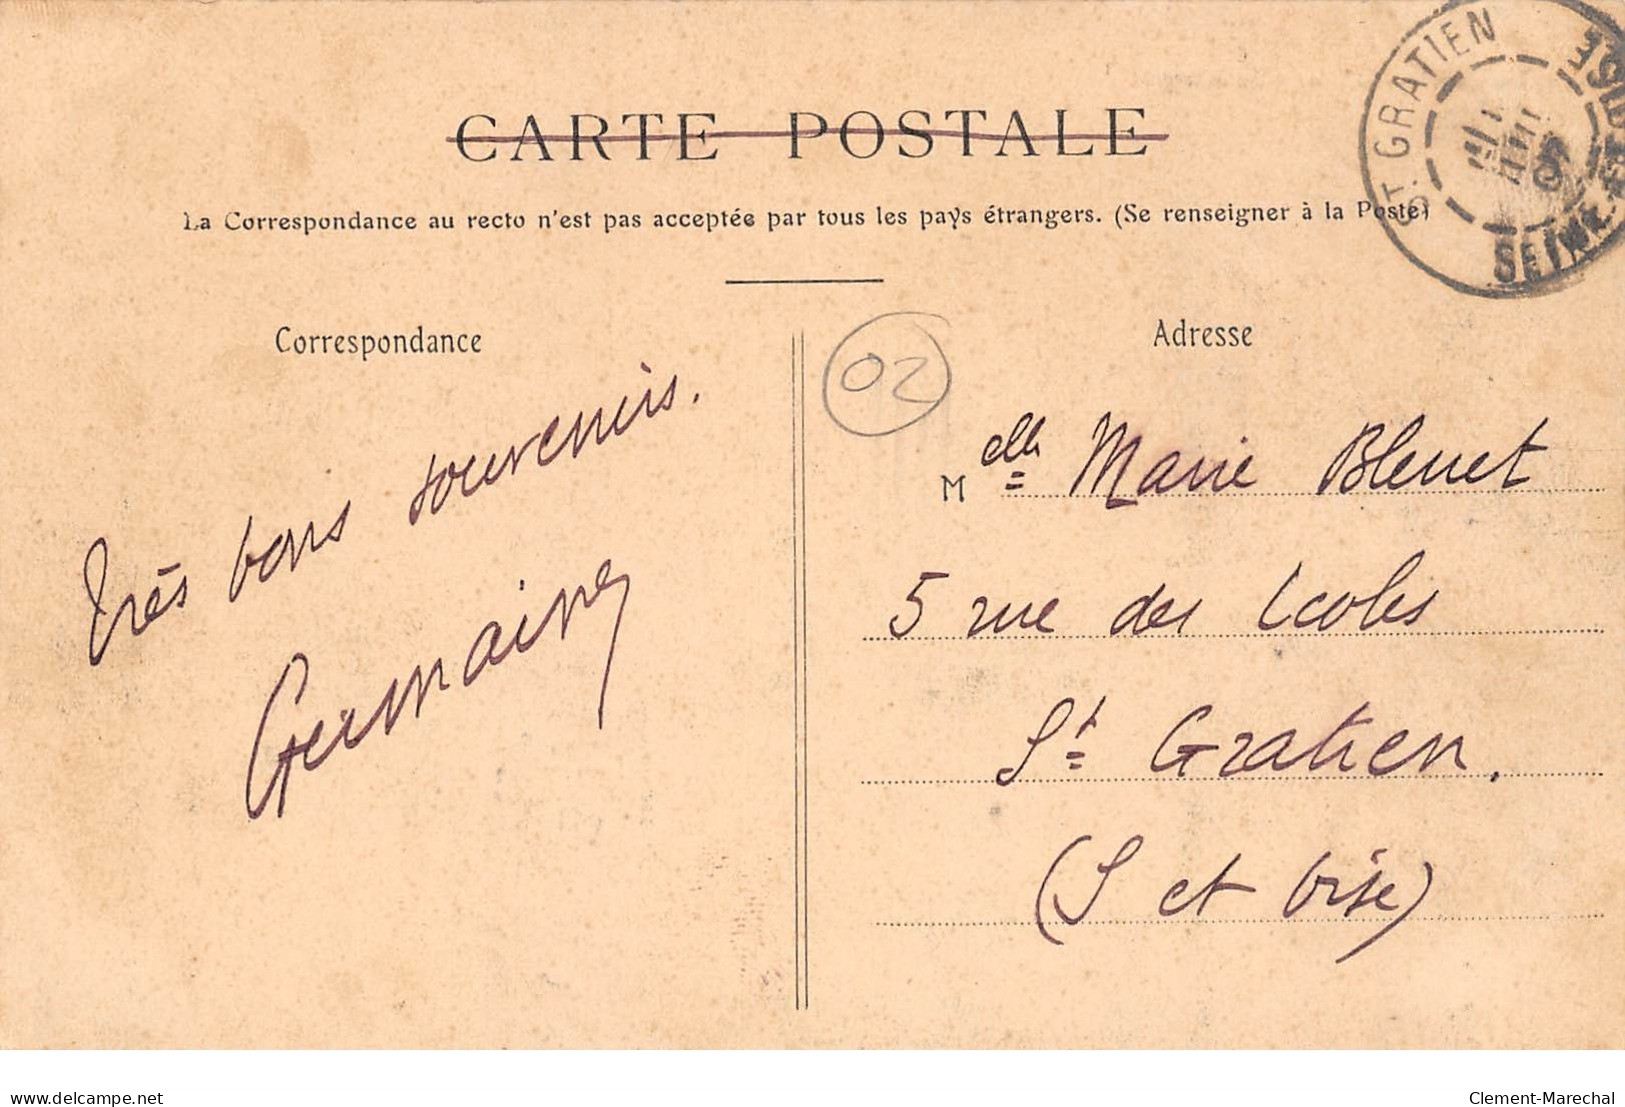 CARTE POSTALE
La Correspondance au recto n'est pas acceptée par tous les pays étrangers. (Se renseigner à la Poste)
ST. GRATIEN
SEINE-ET-OISE
Correspondance
Très bons souvenirs.
Germaine
02
Adresse
Melle Marie Bleuet
5 rue des Ecoles
St Gratien.
(S et Oise)
www.delcampe.net
Clement-Marechal